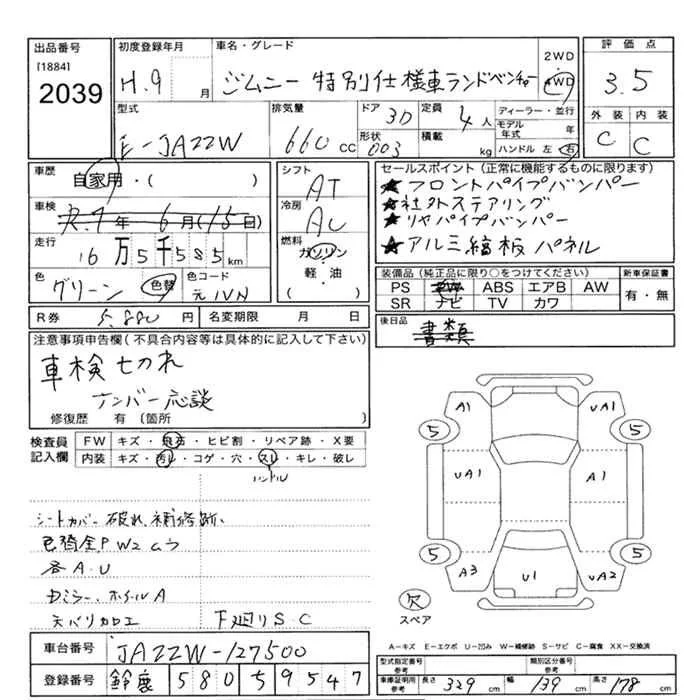 出品番号
[1884]
2039
初度登録年月
H.9 月
車名・グレード
ジムニー 特別仕様車ランドベンチャー
2WD
4WD
評価点
3.5
型式
E-JA22W
排気量
660 cc
ドア 3D
形状 003
定員 4 人
積載 kg
ディーラー・並行
モデル年式 年
ハンドル 左 右
外装
C
内装
C
車歴
自家用・( )
車検
R.7年 6月(15日)
走行
16万5千585 km
色
グリーン 色替
色コード
元 1VN
シフト
AT
冷房
AC
燃料
ガソリン
軽・油
( )
セールスポイント(正常に機能するものに限ります)
★フロントパイプバンパー
★社外ステアリング
★リヤパイプバンパー
★アルミ縞板パネル
装備品(純正品に限り○をつけてください)
PS PW ABS エアB AW
SR ナビ TV カワ
新車保証書
有・無
R券 5.880 円
名変期限 月 日
後日品
書類
注意事項申告欄(不具合内容等は具体的に記入して下さい)
車検切れ
ナンバー応談
修復歴 有(箇所 )
検査員記入欄
FW キズ・飛石・ヒビ割・リペア跡・X要
内装 キズ・汚レ・コゲ・穴・スレ・キレ・破レ
ハンドル
シートカバー破れ、補修跡、
色替全P W2 ムラ
各A・U
ミラー、ホイルA
天バリカロエ
下廻りS・C
A1
UA1
5
5
UA1
A1
5
5
A3
U1
UA2
欠
スペア
A−キズ E−エクボ U−凹み W−補修跡 S−サビ C−腐食 XX−交換済
車台番号
JA22W-127500
登録番号
鈴鹿 580 59547
型式指定番号
参考
類別区分番号
参考
車庫証明用
参考
長さ 329 cm
幅 139 cm
高さ 178 cm